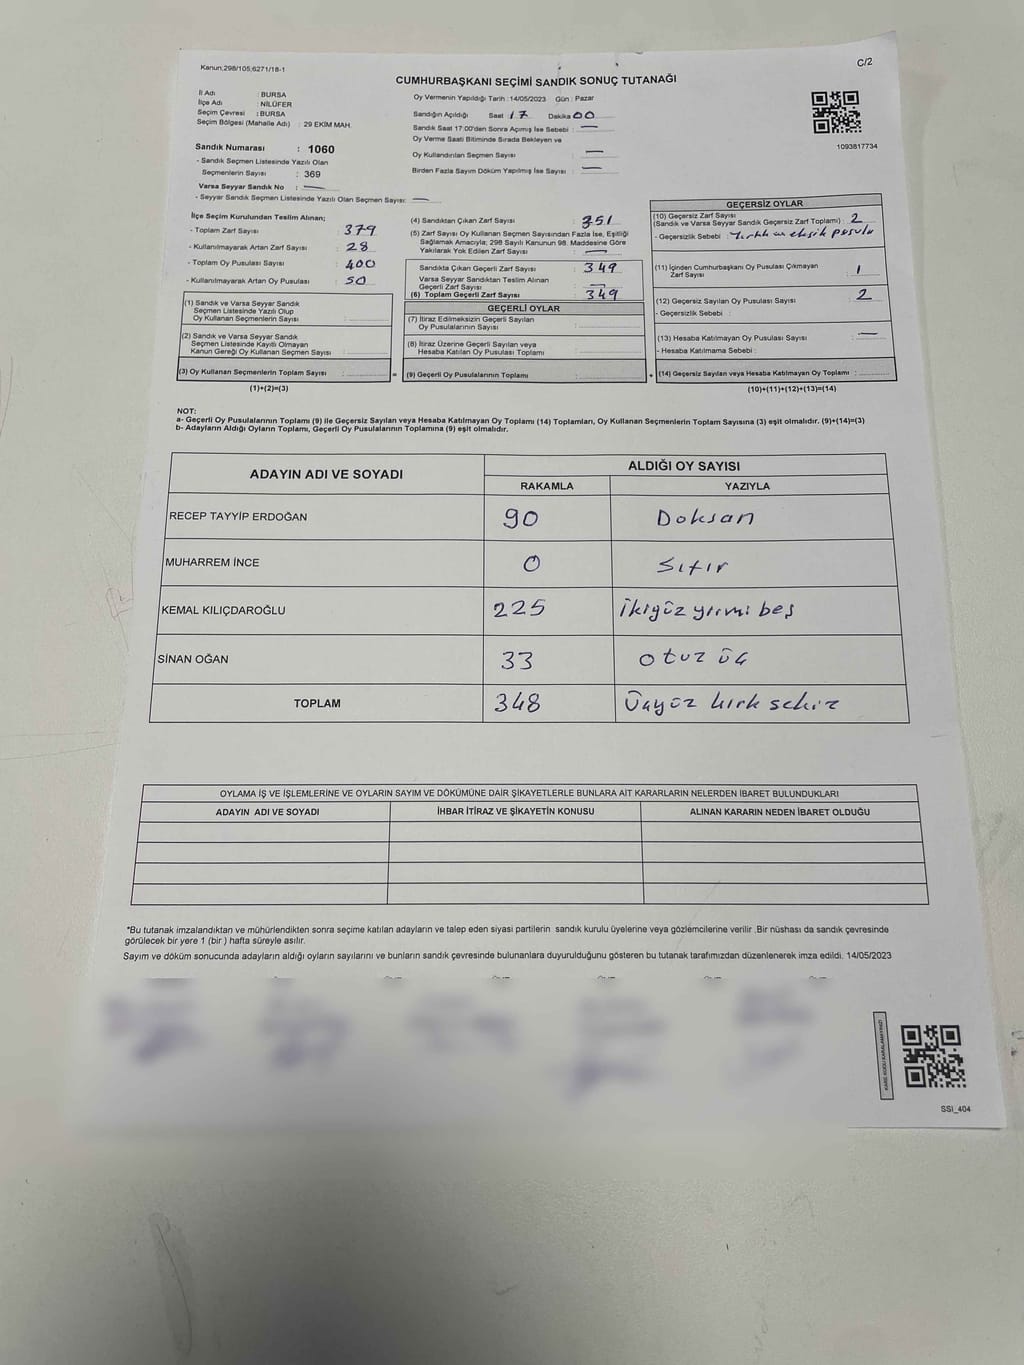 Kanun;298/105,6271/18-1
C/2
CUMHURBAŞKANI SEÇİMİ SANDIK SONUÇ TUTANAĞI
İl Adı : BURSA
İlçe Adı : NİLÜFER
Seçim Çevresi : BURSA
Seçim Bölgesi (Mahalle Adı) : 29 EKİM MAH.
Sandık Numarası : 1060
- Sandık Seçmen Listesinde Yazılı Olan
Seçmenlerin Sayısı : 369
Varsa Seyyar Sandık No : —
- Seyyar Sandık Seçmen Listesinde Yazılı Olan Seçmen Sayısı: —
Oy Vermenin Yapıldığı Tarih :14/05/2023 Gün : Pazar
Sandığın Açıldığı Saat :17 Dakika 00
Sandık Saat 17:00'den Sonra Açımış İse Sebebi : —
Oy Verme Saati Bitiminde Sırada Bekleyen ve
Oy Kullandırılan Seçmen Sayısı : —
Birden Fazla Sayım Döküm Yapılmış İse Sayısı : —
1093817734
İlçe Seçim Kurulundan Teslim Alınan;
- Toplam Zarf Sayısı : 379
- Kullanılmayarak Artan Zarf Sayısı : 28
- Toplam Oy Pusulası Sayısı : 400
- Kullanılmayarak Artan Oy Pusulası : 50
(1) Sandık ve Varsa Seyyar Sandık
Seçmen Listesinde Yazılı Olup
Oy Kullanan Seçmenlerin Sayısı :
(2) Sandık ve Varsa Seyyar Sandık
Seçmen Listesinde Kayıtlı Olmayan
Kanun Gereği Oy Kullanan Seçmen Sayısı :
(3) Oy Kullanan Seçmenlerin Toplam Sayısı :
(1)+(2)=(3)
(4) Sandıktan Çıkan Zarf Sayısı : 351
(5) Zarf Sayısı Oy Kullanan Seçmen Sayısından Fazla İse, Eşitliği
Sağlamak Amacıyla; 298 Sayılı Kanunun 98. Maddesine Göre
Yakılarak Yok Edilen Zarf Sayısı : —
Sandıkta Çıkan Geçerli Zarf Sayısı : 349
Varsa Seyyar Sandıktan Teslim Alınan
Geçerli Zarf Sayısı : —
(6) Toplam Geçerli Zarf Sayısı : 349
GEÇERLİ OYLAR
(7) İtiraz Edilmeksizin Geçerli Sayılan
Oy Pusulalarının Sayısı :
(8) İtiraz Üzerine Geçerli Sayılan veya
Hesaba Katılan Oy Pusulası Toplamı :
= (9) Geçerli Oy Pusulalarının Toplamı :
GEÇERSİZ OYLAR
(10) Geçersiz Zarf Sayısı
(Sandık ve Varsa Seyyar Sandık Geçersiz Zarf Toplamı) : 2
- Geçersizlik Sebebi : eksik pusula
(11) İçinden Cumhurbaşkanı Oy Pusulası Çıkmayan
Zarf Sayısı : 1
(12) Geçersiz Sayılan Oy Pusulası Sayısı : 2
- Geçersizlik Sebebi :
(13) Hesaba Katılmayan Oy Pusulası Sayısı : —
- Hesaba Katılmama Sebebi :
+ (14) Geçersiz Sayılan veya Hesaba Katılmayan Oy Toplamı :
(10)+(11)+(12)+(13)=(14)
NOT:
a- Geçerli Oy Pusulalarının Toplamı (9) ile Geçersiz Sayılan veya Hesaba Katılmayan Oy Toplamı (14) Toplamları, Oy Kullanan Seçmenlerin Toplam Sayısına (3) eşit olmalıdır. (9)+(14)=(3)
b- Adayların Aldığı Oyların Toplamı, Geçerli Oy Pusulalarının Toplamına (9) eşit olmalıdır.
ADAYIN ADI VE SOYADI
ALDIĞI OY SAYISI
RAKAMLA YAZIYLA
RECEP TAYYİP ERDOĞAN 90 Doksan
MUHARREM İNCE 0 Sıfır
KEMAL KILIÇDAROĞLU 225 İkiyüz yirmi beş
SİNAN OĞAN 33 otuz üç
TOPLAM 348 Üçyüz kırk sekiz
OYLAMA İŞ VE İŞLEMLERİNE VE OYLARIN SAYIM VE DÖKÜMÜNE DAİR ŞİKAYETLERLE BUNLARA AİT KARARLARIN NELERDEN İBARET BULUNDUKLARI
ADAYIN ADI VE SOYADI İHBAR İTİRAZ VE ŞİKAYETİN KONUSU ALINAN KARARIN NEDEN İBARET OLDUĞU
*Bu tutanak imzalandıktan ve mühürlendikten sonra seçime katılan adayların ve talep eden siyasi partilerin sandık kurulu üyelerine veya gözlemcilerine verilir .Bir nüshası da sandık çevresinde
görülecek bir yere 1 (bir ) hafta süreyle asılır.
Sayım ve döküm sonucunda adayların aldığı oyların sayılarını ve bunların sandık çevresinde bulunanlara duyurulduğunu gösteren bu tutanak tarafımızdan düzenlenerek imza edildi. 14/05/2023
KARE KODU KARALAMAYINIZ!
SSI_404